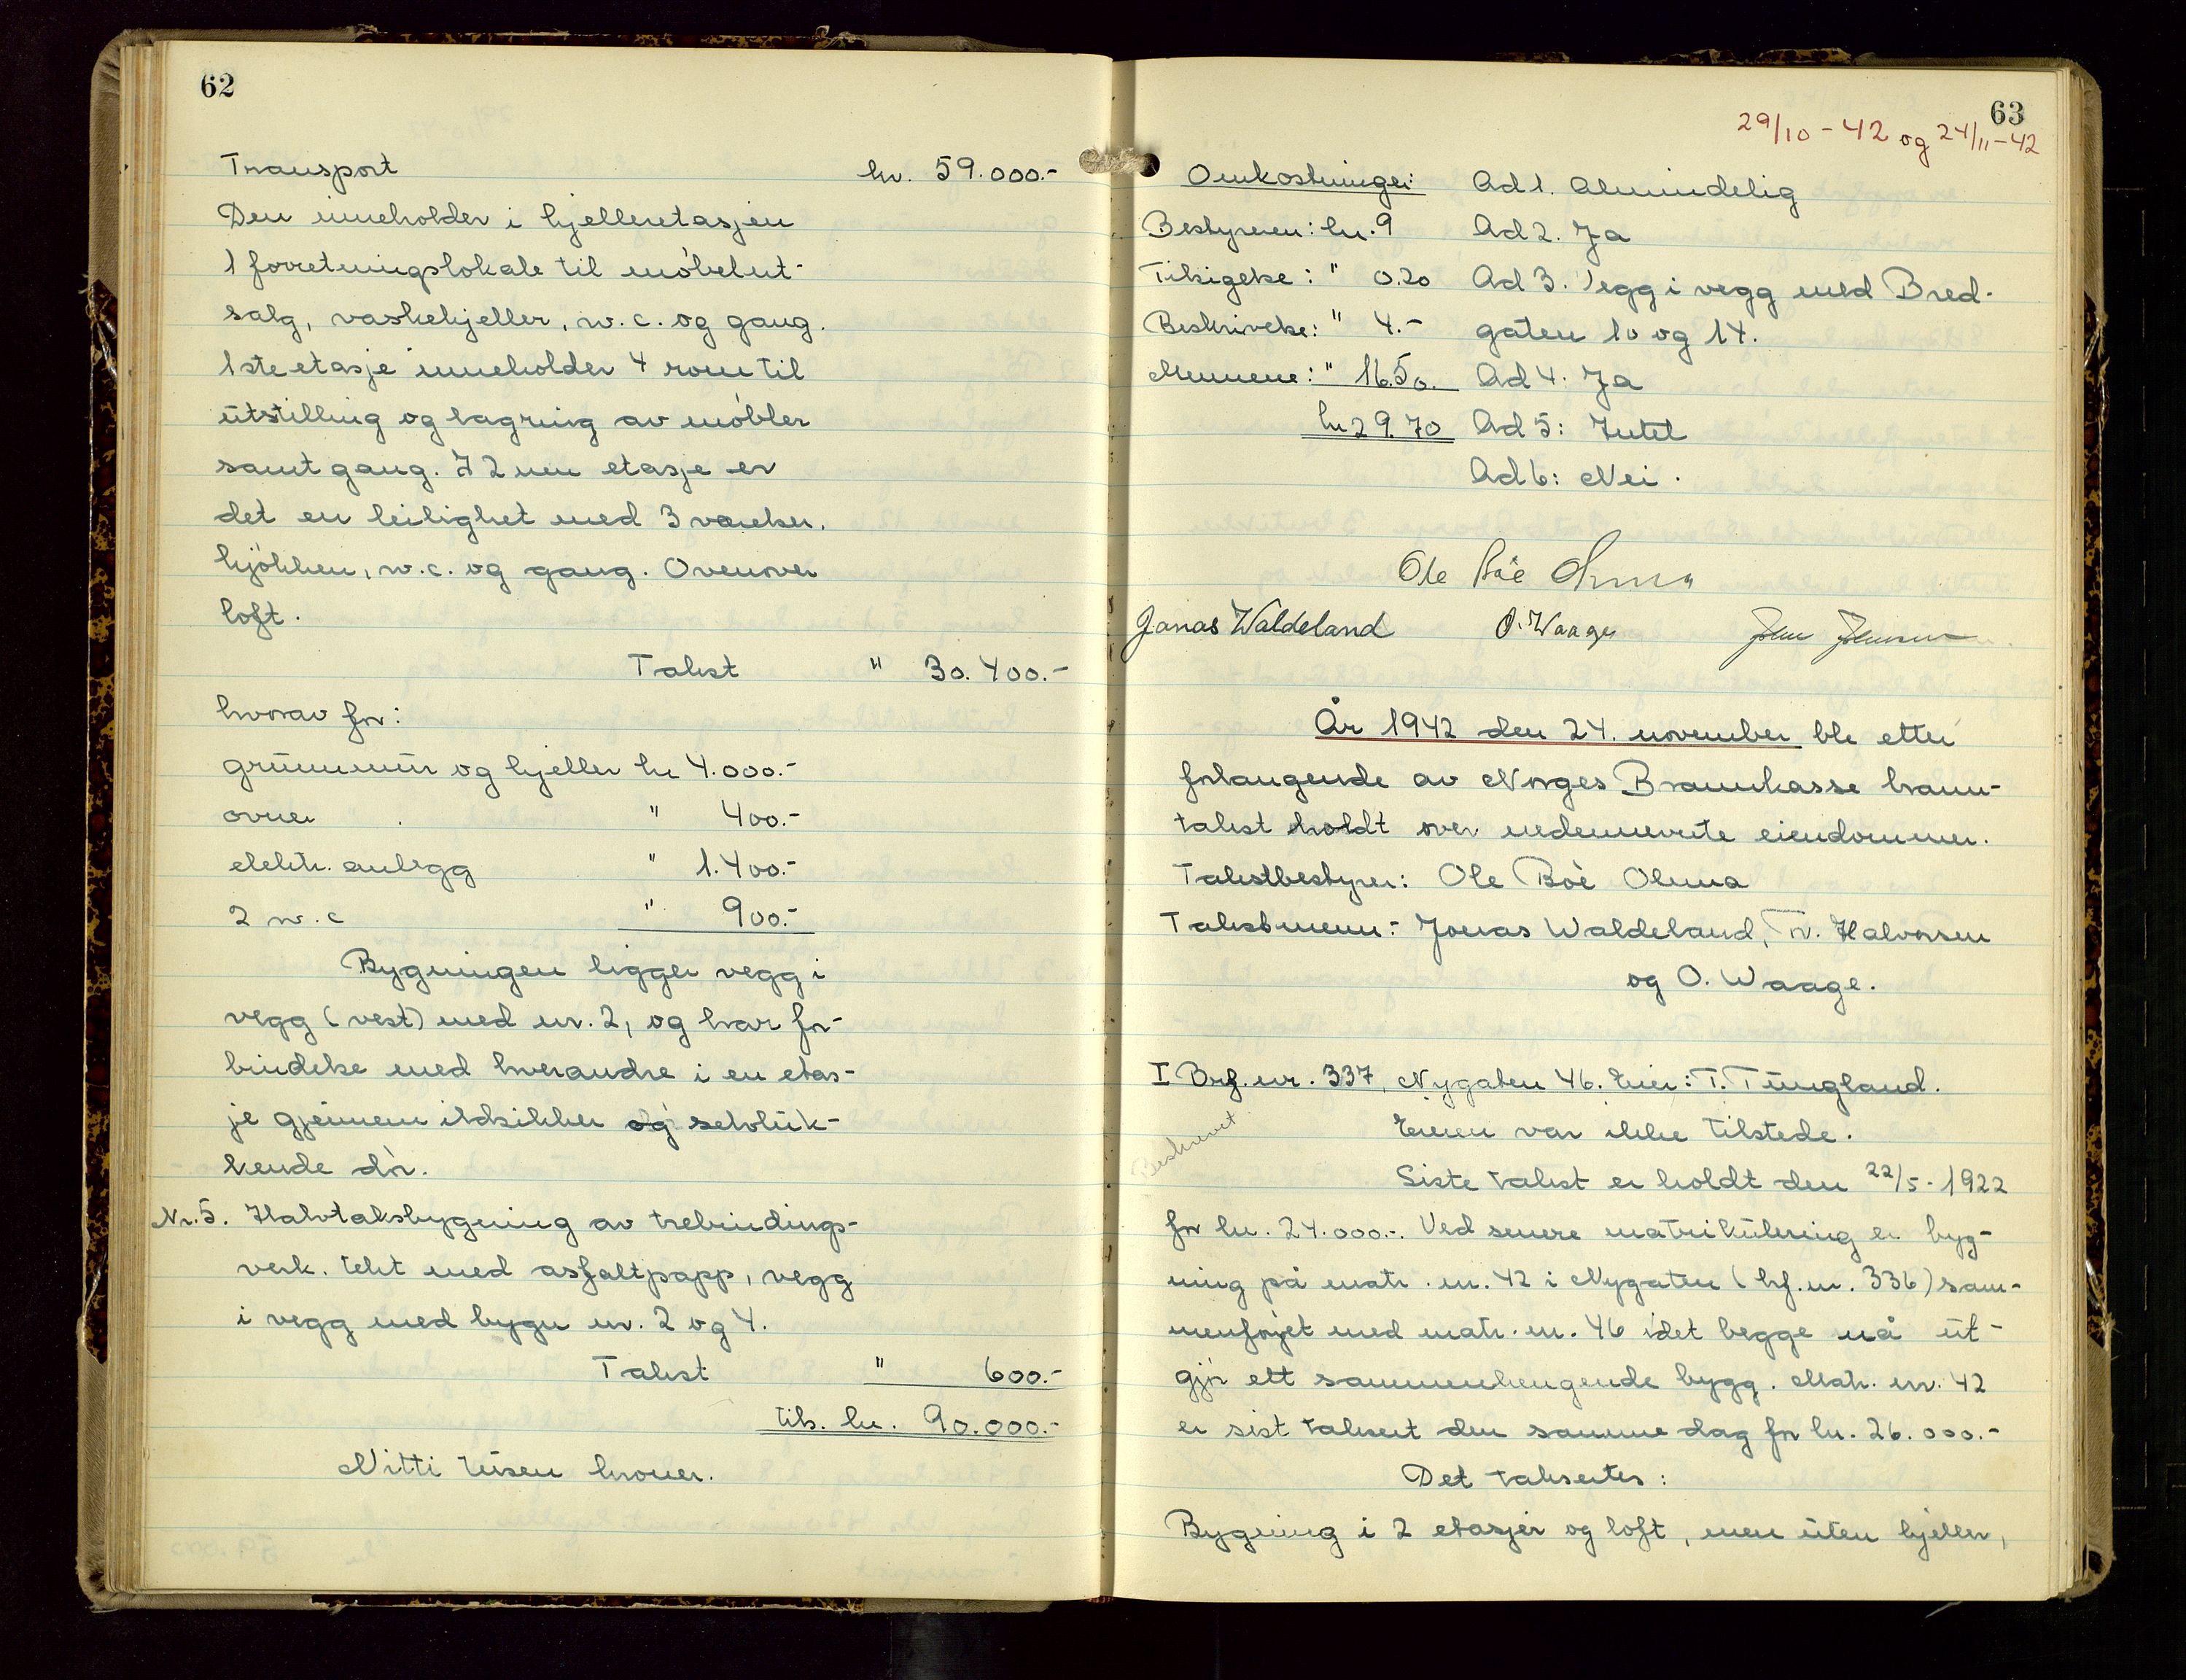 62
Transport kr. 59.000.-
Den inneholder i kjelleretasjen
1 forretningslokale til møbelut-
salg, vaskekjeller, w.c. og gang.
1ste etasje inneholder 4 rom til
utstilling og lagring av møbler
samt gang. I 2nen etasje er
det en leilighet med 3 værelser,
kjøkken, w.c. og gang. Ovenover
loft.
Takst " 30.400.-
hvorav for:
grunnmur og kjeller kr 4.000.-
ovner " 400.-
elektr. anlegg " 1.400.-
2 w.c " 900.-
Bygningen ligger vegg i
vegg (vest) med nr. 2, og har for-
bindelse med hverandre i en etas-
je gjennem ildsikker og selvluk-
kende dør.
Nr. 5. Halvtaksbygning av trebindings-
verk. tekt med asfaltpapp, vegg
i vegg med bygn nr. 2 og 4.
Takst " 600.-
tils. kr. 90.000.-
Nitti tusen kroner.
63
29/10 - 42 og 24/11-42
Omkostninger: Ad 1. Almindelig
Bestyreren: kr. 9 Ad 2. Ja
Tilsigelse: " 0.20 Ad 3. Vegg i vegg med Bred-
Beskrivelse: " 4.- gaten 10 og 14.
Mennene: " 16.50. Ad 4. Ja
kr 29.70 Ad 5: Intet
Ad 6: Nei.
Ole Bøe Olsen
Jonas Waldeland O. Waage
År 1942 den 24. november ble etter
forlangende av Norges Brannkasse brann-
takst holdt over nedennevnte eiendommer.
Takstbestyrer: Ole Bøe Olsen
Takstmenn: Jonas Waldeland, Tr. Halvorsen
og O. Waage.
I Brf. nr. 337, Nygaten 46. Eier: T. Tungland.
Beskrevet
Eieren var ikke tilstede.
Siste takst er holdt den 22/5 - 1922
for kr. 24.000.-. Ved senere matrikulering er byg-
ning på matr. nr. 42 i Nygaten (brf. nr. 336) sam-
menføjet med matr. nr. 46 idet begge nå ut-
gjør ett sammenhengende bygg. Matr. nr. 42
er sist taksert den samme dag for kr. 26.000.-
Det takseres:
Bygning i 2 etasjer og loft, men uten kjeller,